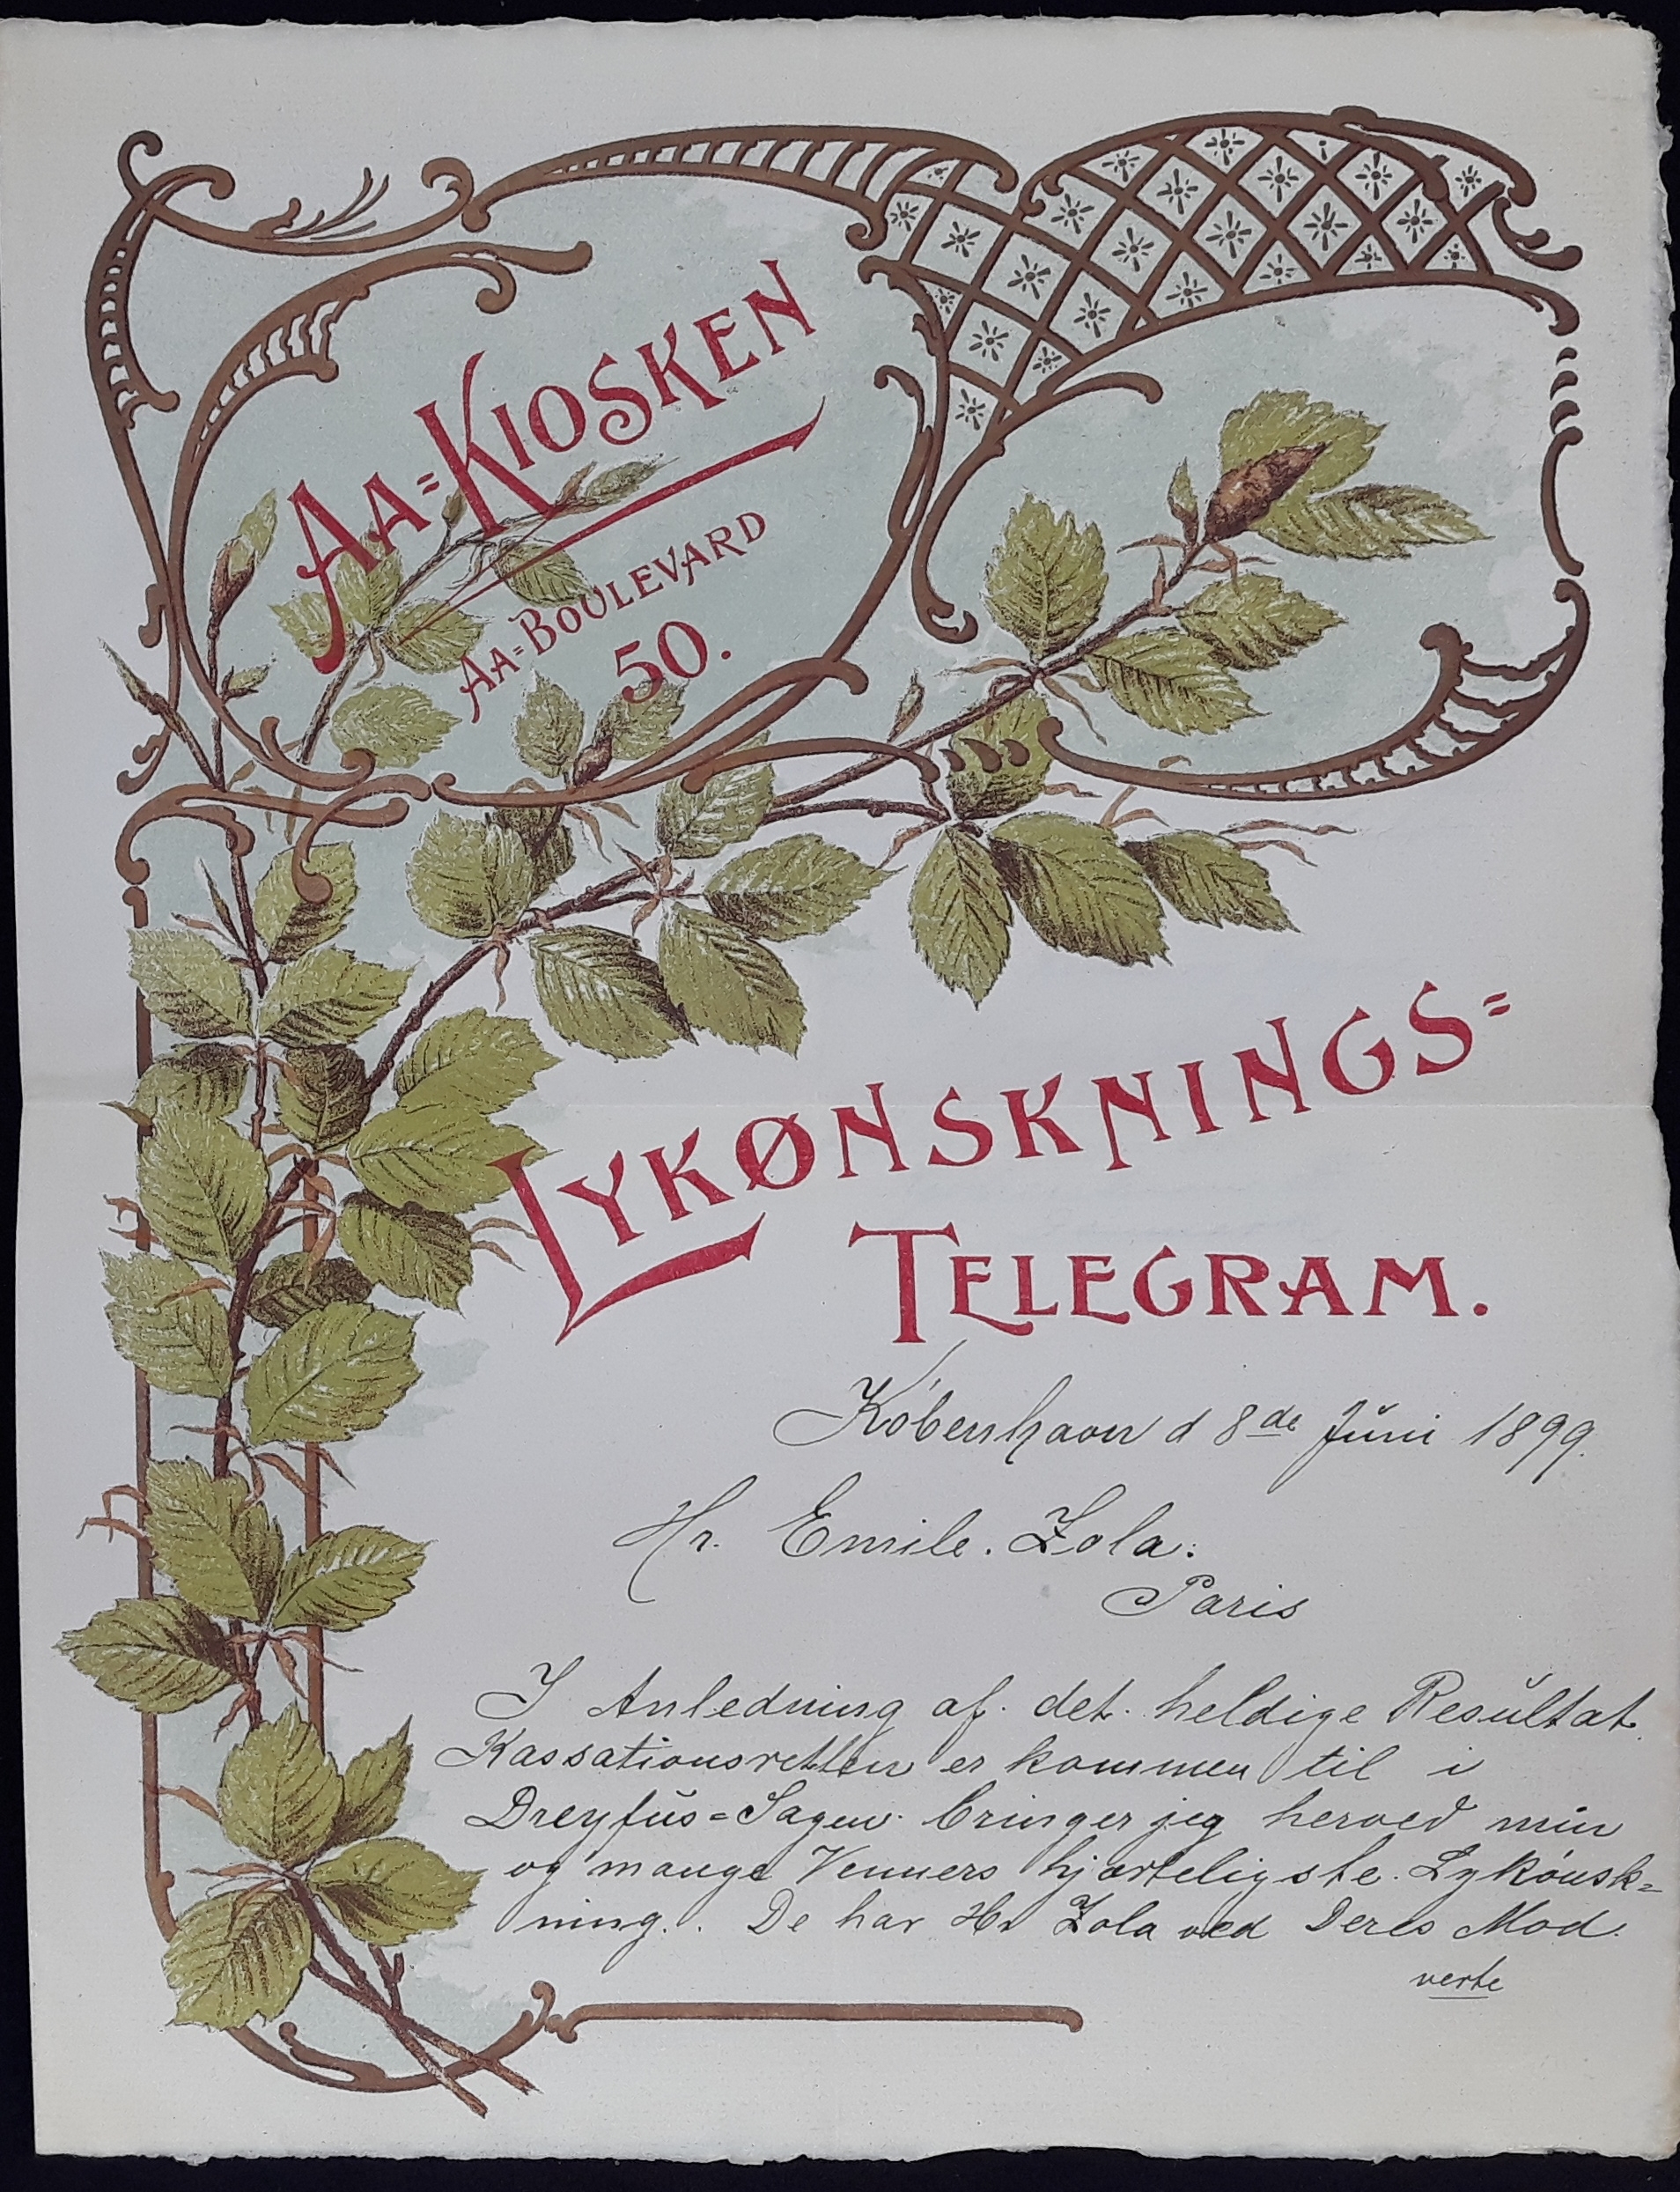 AA=KIOSKEN
AA=BOULEVARD
50.
LYKØNSKNINGS=
TELEGRAM.
København d 8de Juni 1899.
Hr. Emile. Zola:
Paris
I Anledning af. det. heldige Resultat.
Kassationsretten er kommen til i
Dreyfus=Sagen. bringer jeg herved min
og mange Venners hjærteligste. Lykønsk=
ning.. De har Hr Zola ved Deres Mod.
verte